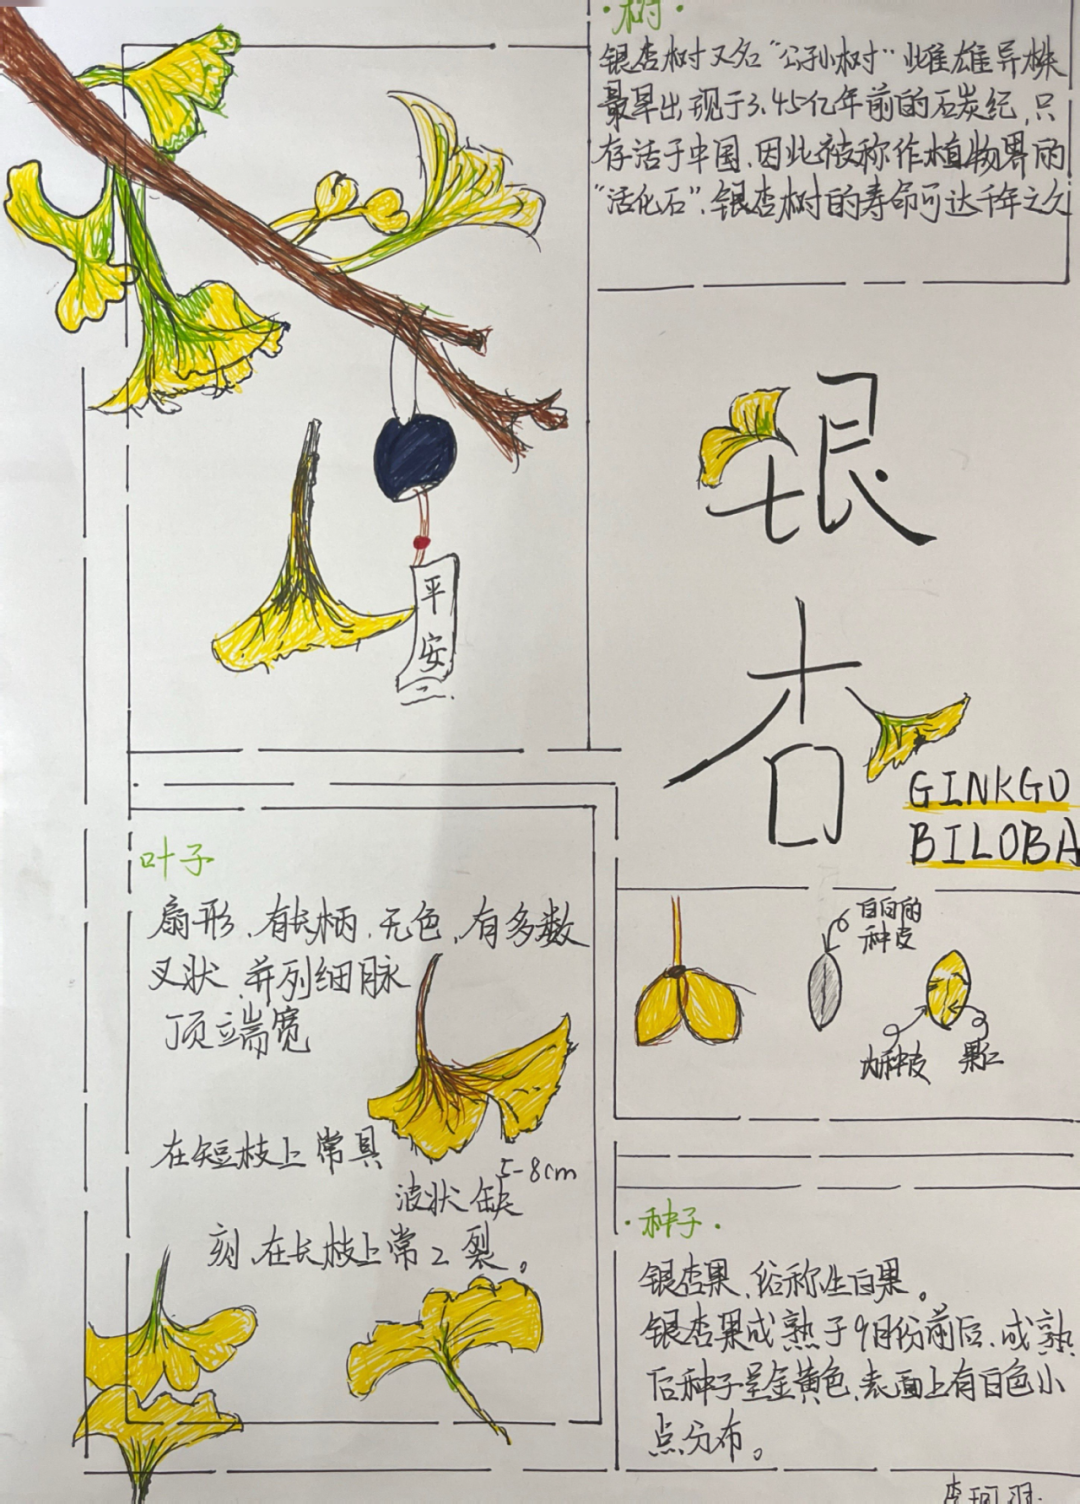 ·树·
银杏树又名“公孙树”雌雄异株
最早出现于3.45亿年前的石炭纪,只
存活于中国、因此被称作植物界的
“活化石”、银杏树的寿命可达千年之久
银
杏
GINKGO
BILOBA
平
安
叶子
扇形、有长柄、无色、有多数
叉状、并列细脉
顶端宽
5-8cm
在短枝上常具
波状缺
刻、在长枝上常2裂。
白白的
种皮
内种皮
果仁
·种子·
银杏果、俗称生白果。
银杏果成熟于9月份前后、成熟
后种子呈金黄色、表面上有白色小
点分布。